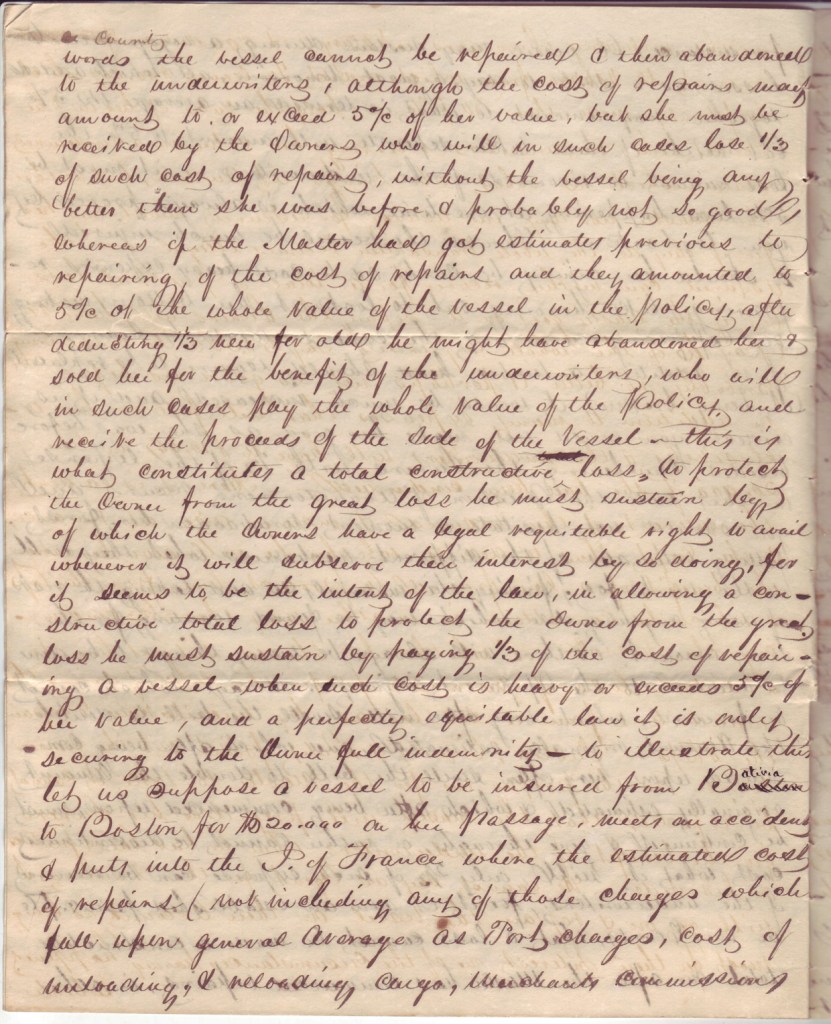 a County
words the vessel cannot be repaired & then abandoned
to the underwriters, although the cost of repairs may
amount to. or exceed 5% of her value, but she must be
received by the Owners who will in such cases lose 1/3
of such cost of repairs, without the vessel being any
better then she was before & probably not so good,
whereas if the Master had got estimates previous to
repairing of the cost of repairs and they amounted to
5% of the whole value of the vessel in the policy, after
deducting 1/3 new for old he might have abandoned her &
sold her for the benefit of the underwriters, who will
in such cases pay the whole value of the Policy, and
receive the proceeds of the sale of the Vessel – this is
what constitutes a total constructive loss, to protect
the Owner from the great loss he must sustain by
of which the Owners have a legal & equitable right to avail
whenever it will subserve their interest by so doing, for
it seems to be the intent of the law, in allowing a con-
structive total loss to protect the Owner from the great
loss he must sustain by paying 1/3 of the cost of repair-
ing a vessel when such cost is heavy or exceeds 5% of
her value, and a perfectly equitable law it is only
securing to the Owner full indemnity – to illustrate this
let us suppose a vessel to be insured from Bativia
to Boston for $20.000 on her passage, meets an accident
& puts into the I. of France where the estimated cost
of repairs. (not including any of those charges which
fall upon general Average as Port charges, cost of
unloading, & reloading cargo, Merchants commissions